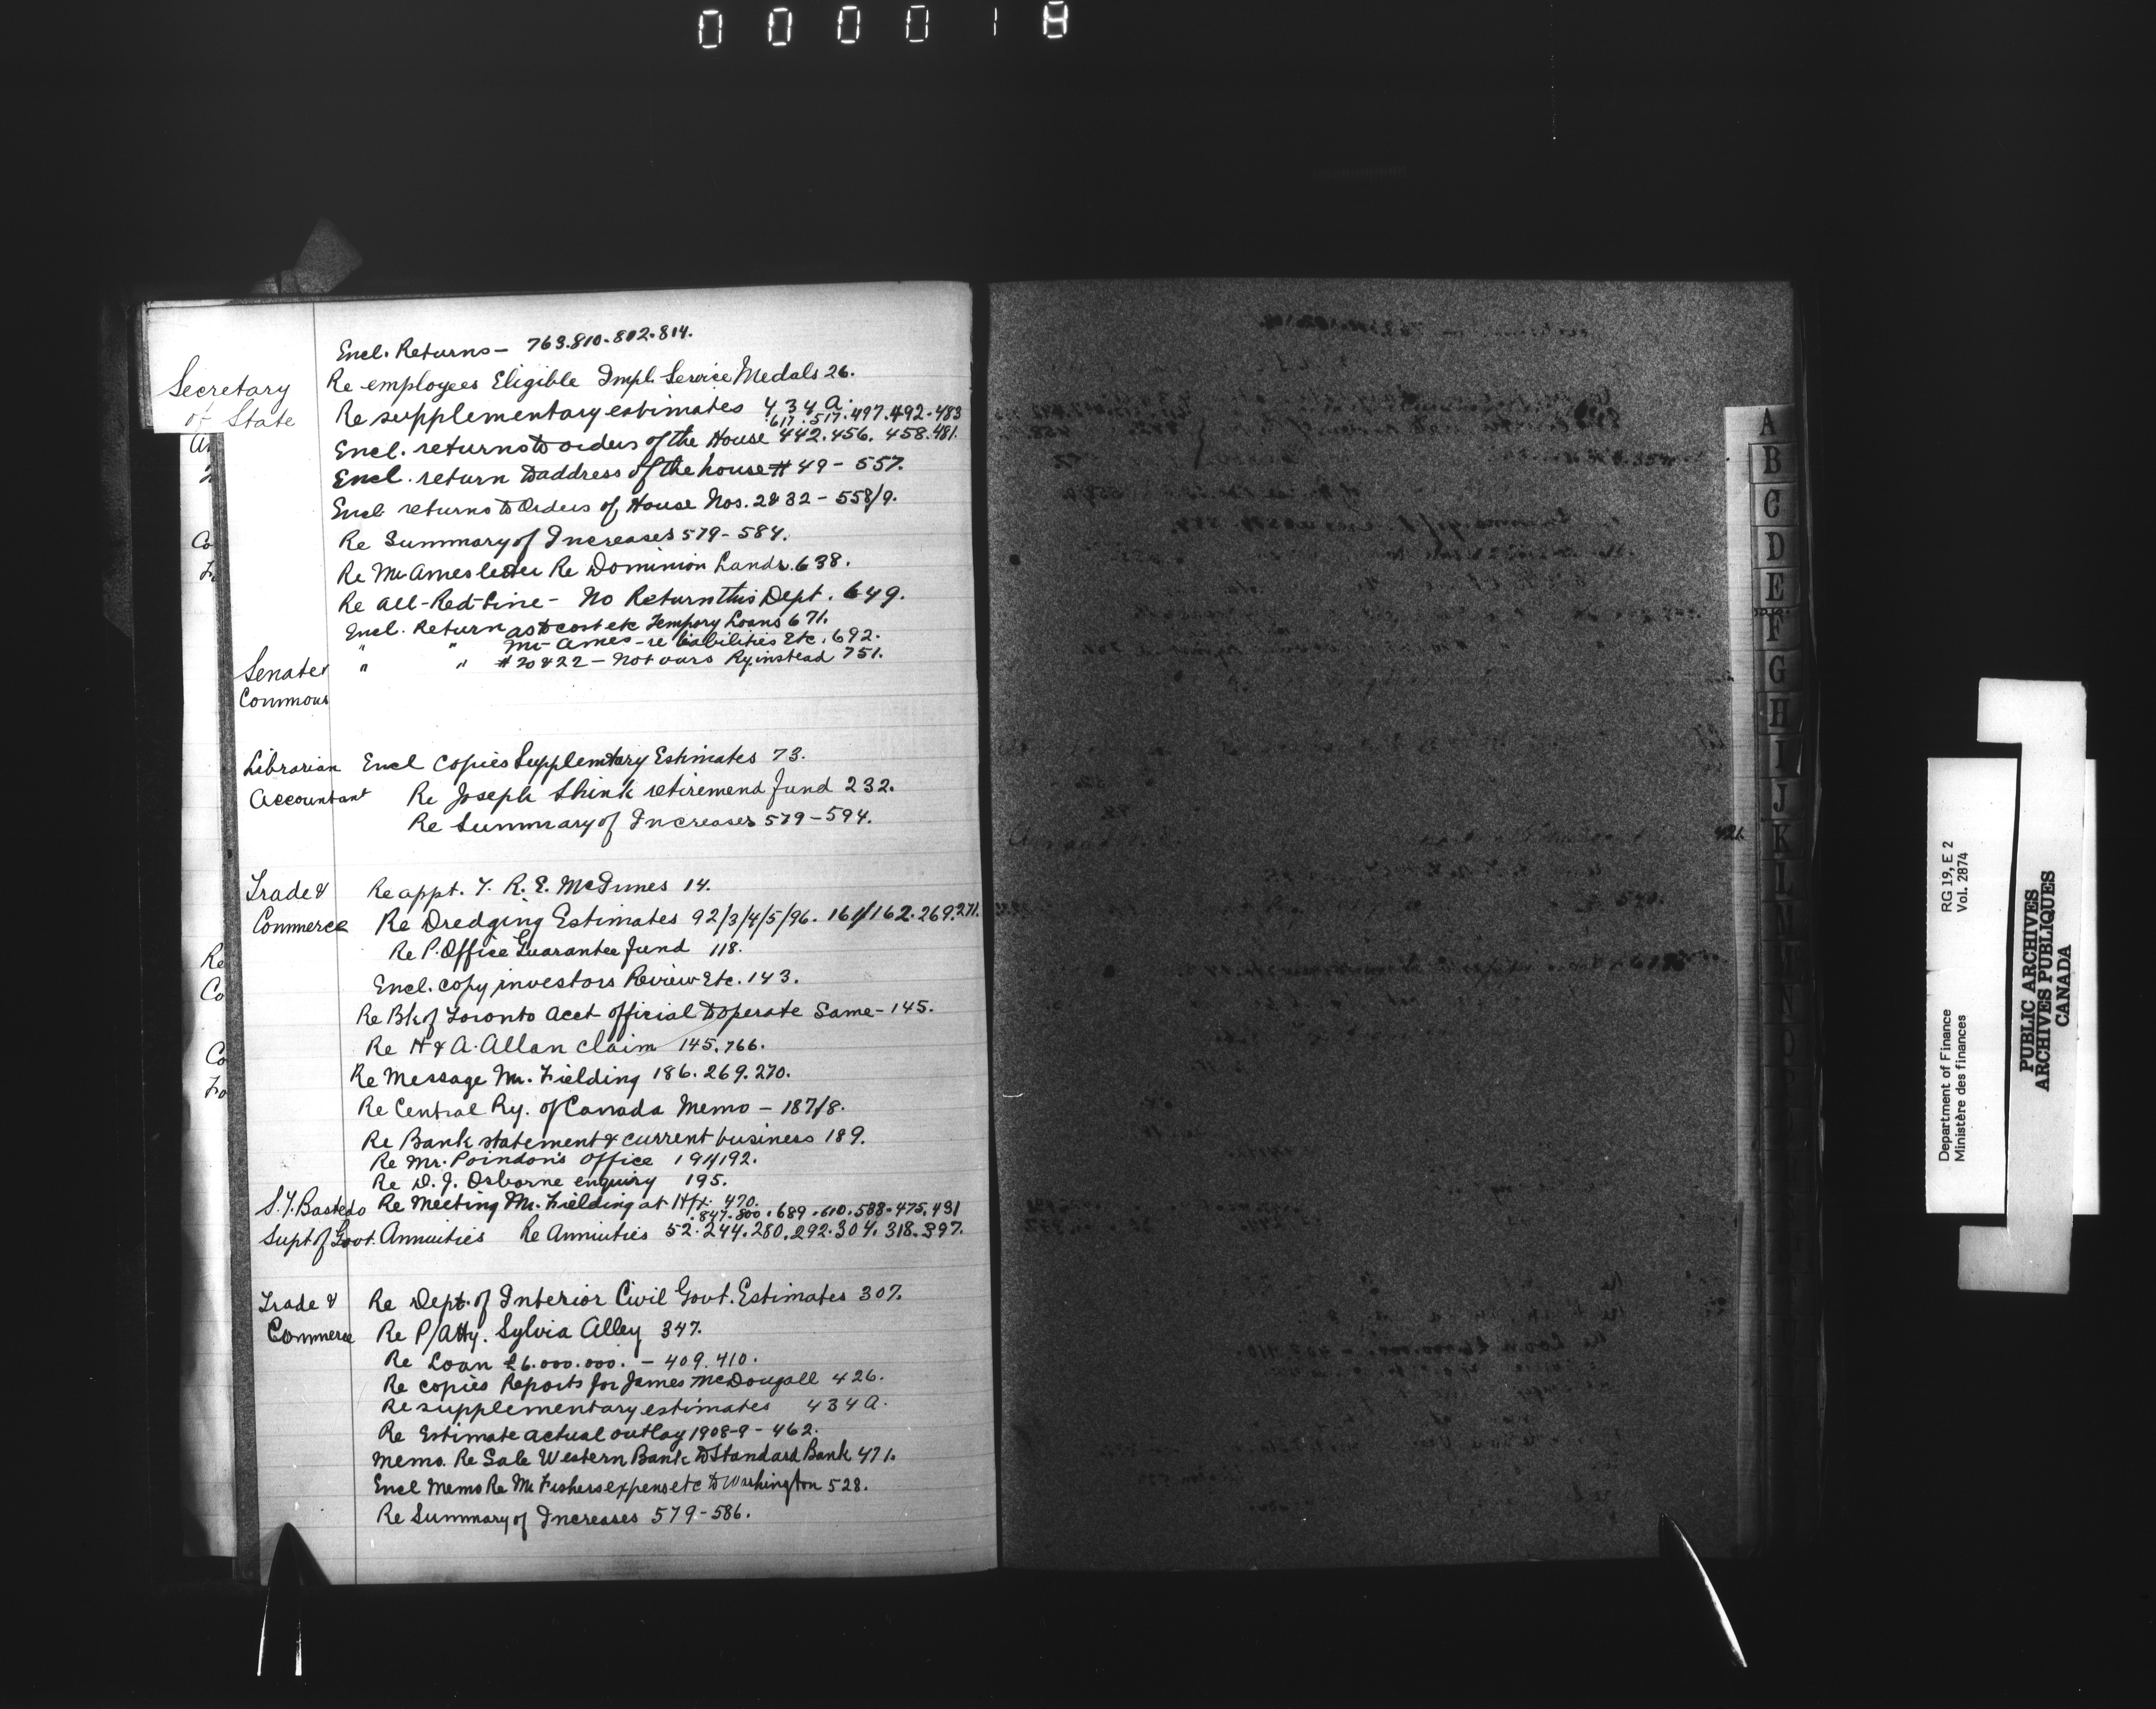 000018
Encl. Returns — 763.810.802.814.
Secretary of State
Re employees Eligible Impl. Service Medals 26.
Re supplementary estimates 434A.
617.517.497.492-483
Encl. returns to orders of the House 442.456. 458.481.
Encl. return to address of the house # 49 - 557.
Encl returns to Orders of House Nos. 2 & 32 - 558/9.
Re Summary of Increases 579-584.
Re Mr Ames letter Re Dominion Lands. 638.
Re All-Red-Line - No Return this Dept. 649.
Encl. Return as to cost etc Tempory Loans 671.
" " Mr Ames - re liabilities Etc. 692.
" " # 20 & 22 - Not ours Ry. instead 751.
Senate &
Commons
Librarian Encl Copies Supplemtary Estimates 73.
Accountant Re Joseph Shink retirement fund 232.
Re Summary of Increases 579-594.
Trade & Re appt. T. R. E. McInnes 14.
Commerce Re Dredging Estimates 92/3/4/5/96. 161/162.269.271.
Re P. Office Guarantee fund 118.
Encl. copy investors Review Etc. 143.
Re Bk of Toronto Acct official to operate Same - 145.
Re H & A. Allan claim 145.766.
Re Message Mr. Fielding 186.269.270.
Re Central Ry. of Canada Memo - 187/8.
Re Bank statement & current business 189.
Re Mr. Poindon's Office 191/192.
Re D. J. Osborne enquiry 195.
S. T. Bastedo Re Meeting Mr. Fielding at Hfx. 470.
.847.800.689.610.588-475.431
Supt of Govt. Annuities Re Annuities 52.244.280.292.304.318.397.
Trade & Re Dept. of Interior Civil Govt. Estimates 307.
Commerce Re P/Atty. Sylvia Alley 347.
Re Loan £6.000.000. - 409.410.
Re copies Reports for James McDougall 426.
Re supplementary estimates 434A.
Re Estimate actual outlay 1908-9 - 462.
Memo. Re Sale Western Bank to Standard Bank 471.
Encl Memo Re Mr Fishers expens etc to Washington 528.
Re Summary of Increases 579-586.
Co
Re
Co
Co
Fo
A
B
C
D
E
F
G
H
I
J
K
L
M
N
O
Department of Finance RG 19, E 2
Ministère des finances Vol. 2874
PUBLIC ARCHIVES
ARCHIVES PUBLIQUES
CANADA